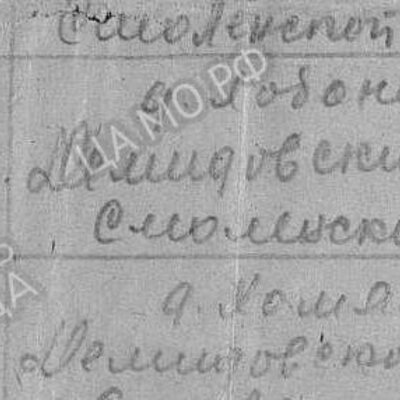 Смоленской
Демидовски
Смоленско
д. Хомя
Демидовско
ЦА МО РФ